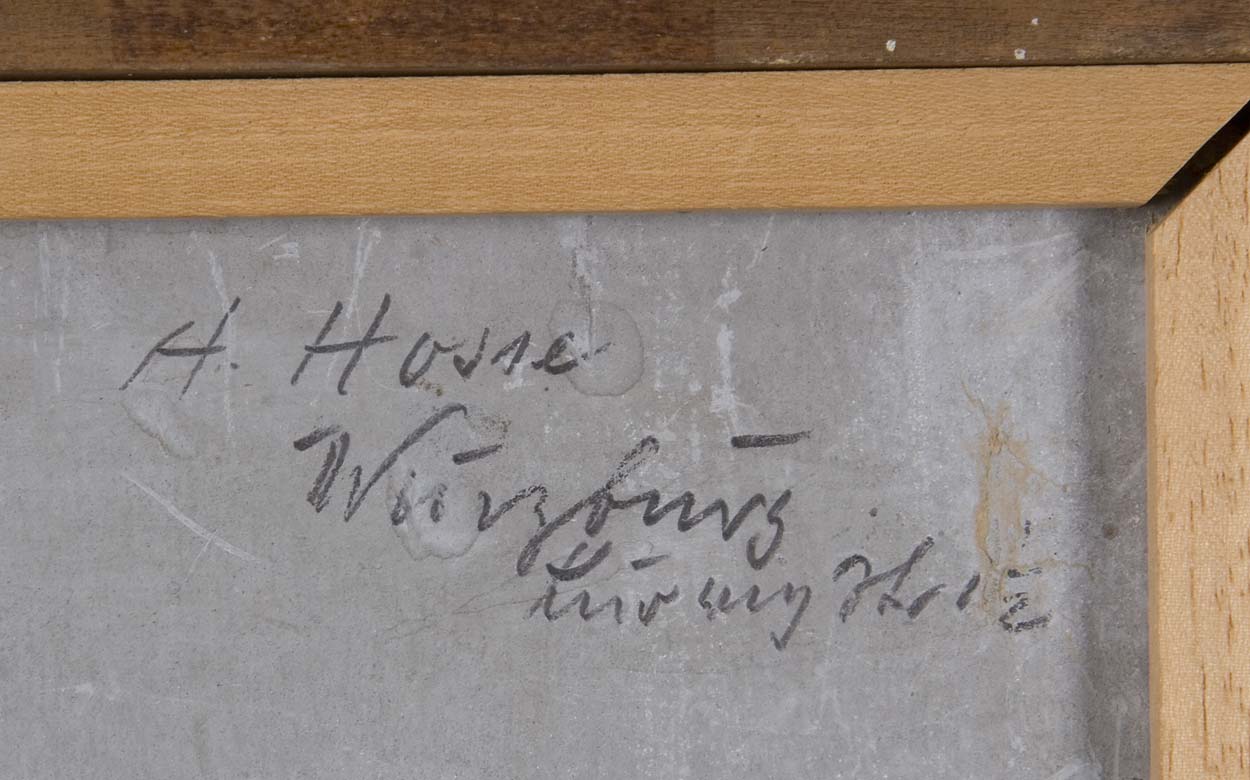 A. Hosse
Würzburg
Ludwigstr.